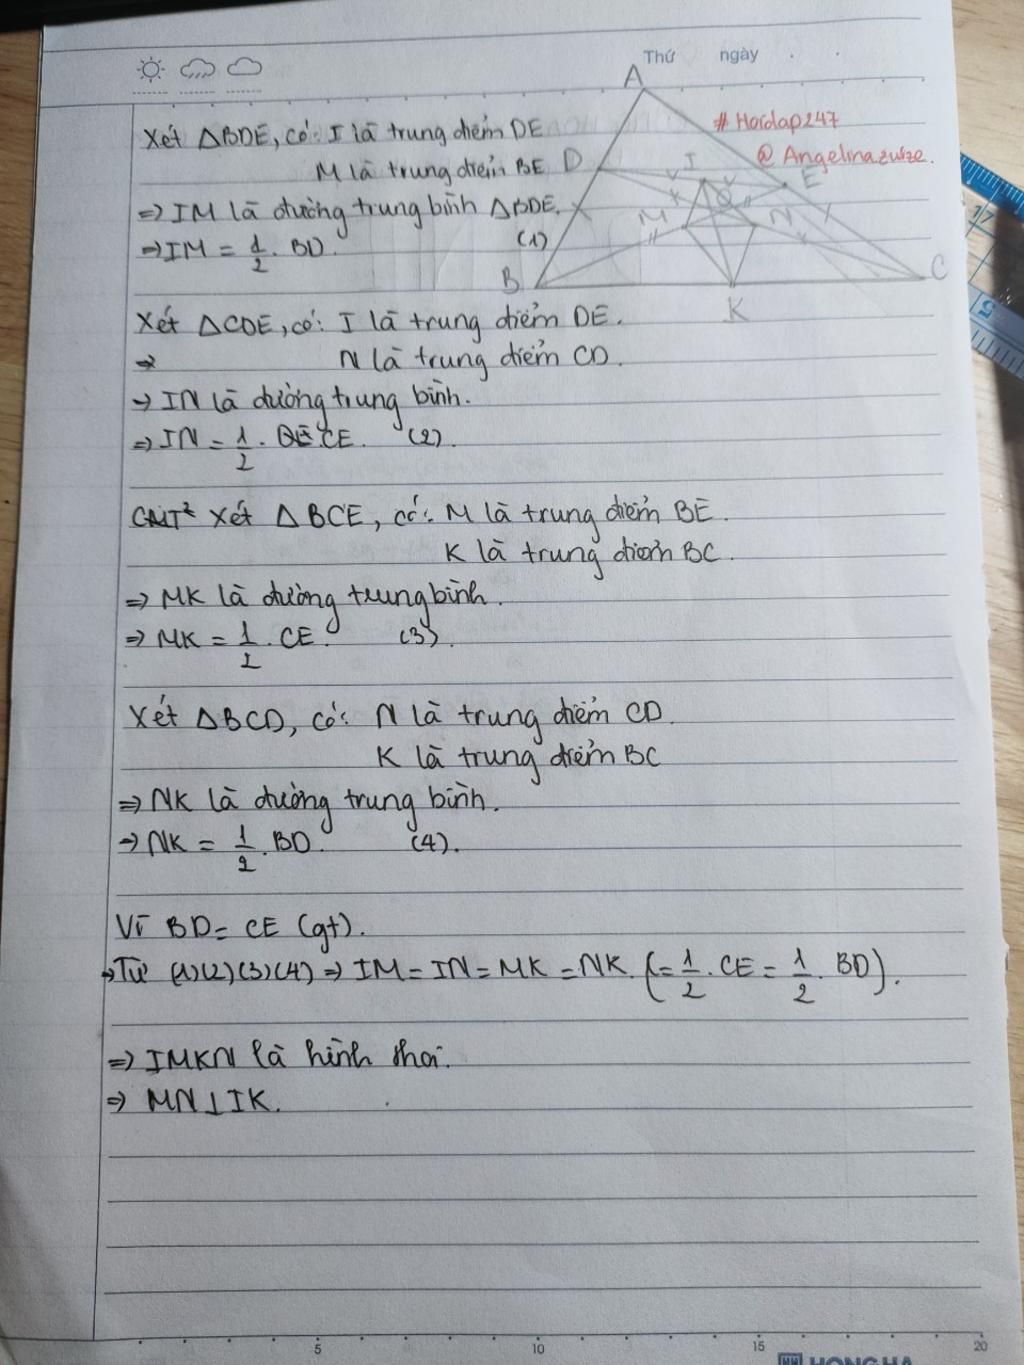 Thứ ngày
A
# Hoidap247
@ Angelinazuize.
Xét ΔBDE, có: I là trung điểm DE
M là trung điểm BE
D I E
⇒ IM là đường trung bình ΔBDE.
M N
⇒ IM = 1/2 . BD. (1)
B K C
Xét ΔCDE, có: I là trung điểm DE.
⇒ N là trung điểm CD.
⇒ IN là đường trung bình.
⇒ IN = 1/2 . CE. (2).
Xét ΔBCE, có: M là trung điểm BE.
K là trung điểm BC.
⇒ MK là đường trung bình.
⇒ MK = 1/2 . CE. (3).
Xét ΔBCD, có: N là trung điểm CD.
K là trung điểm BC
⇒ NK là đường trung bình.
⇒ NK = 1/2 . BD. (4).
Vì BD = CE (gt).
⇒ Từ (1)(2)(3)(4) ⇒ IM = IN = MK = NK. (= 1/2 . CE = 1/2 . BD).
⇒ IMKN là hình thoi.
⇒ MN ⊥ IK.
5 10 15 20
HONG HA
17